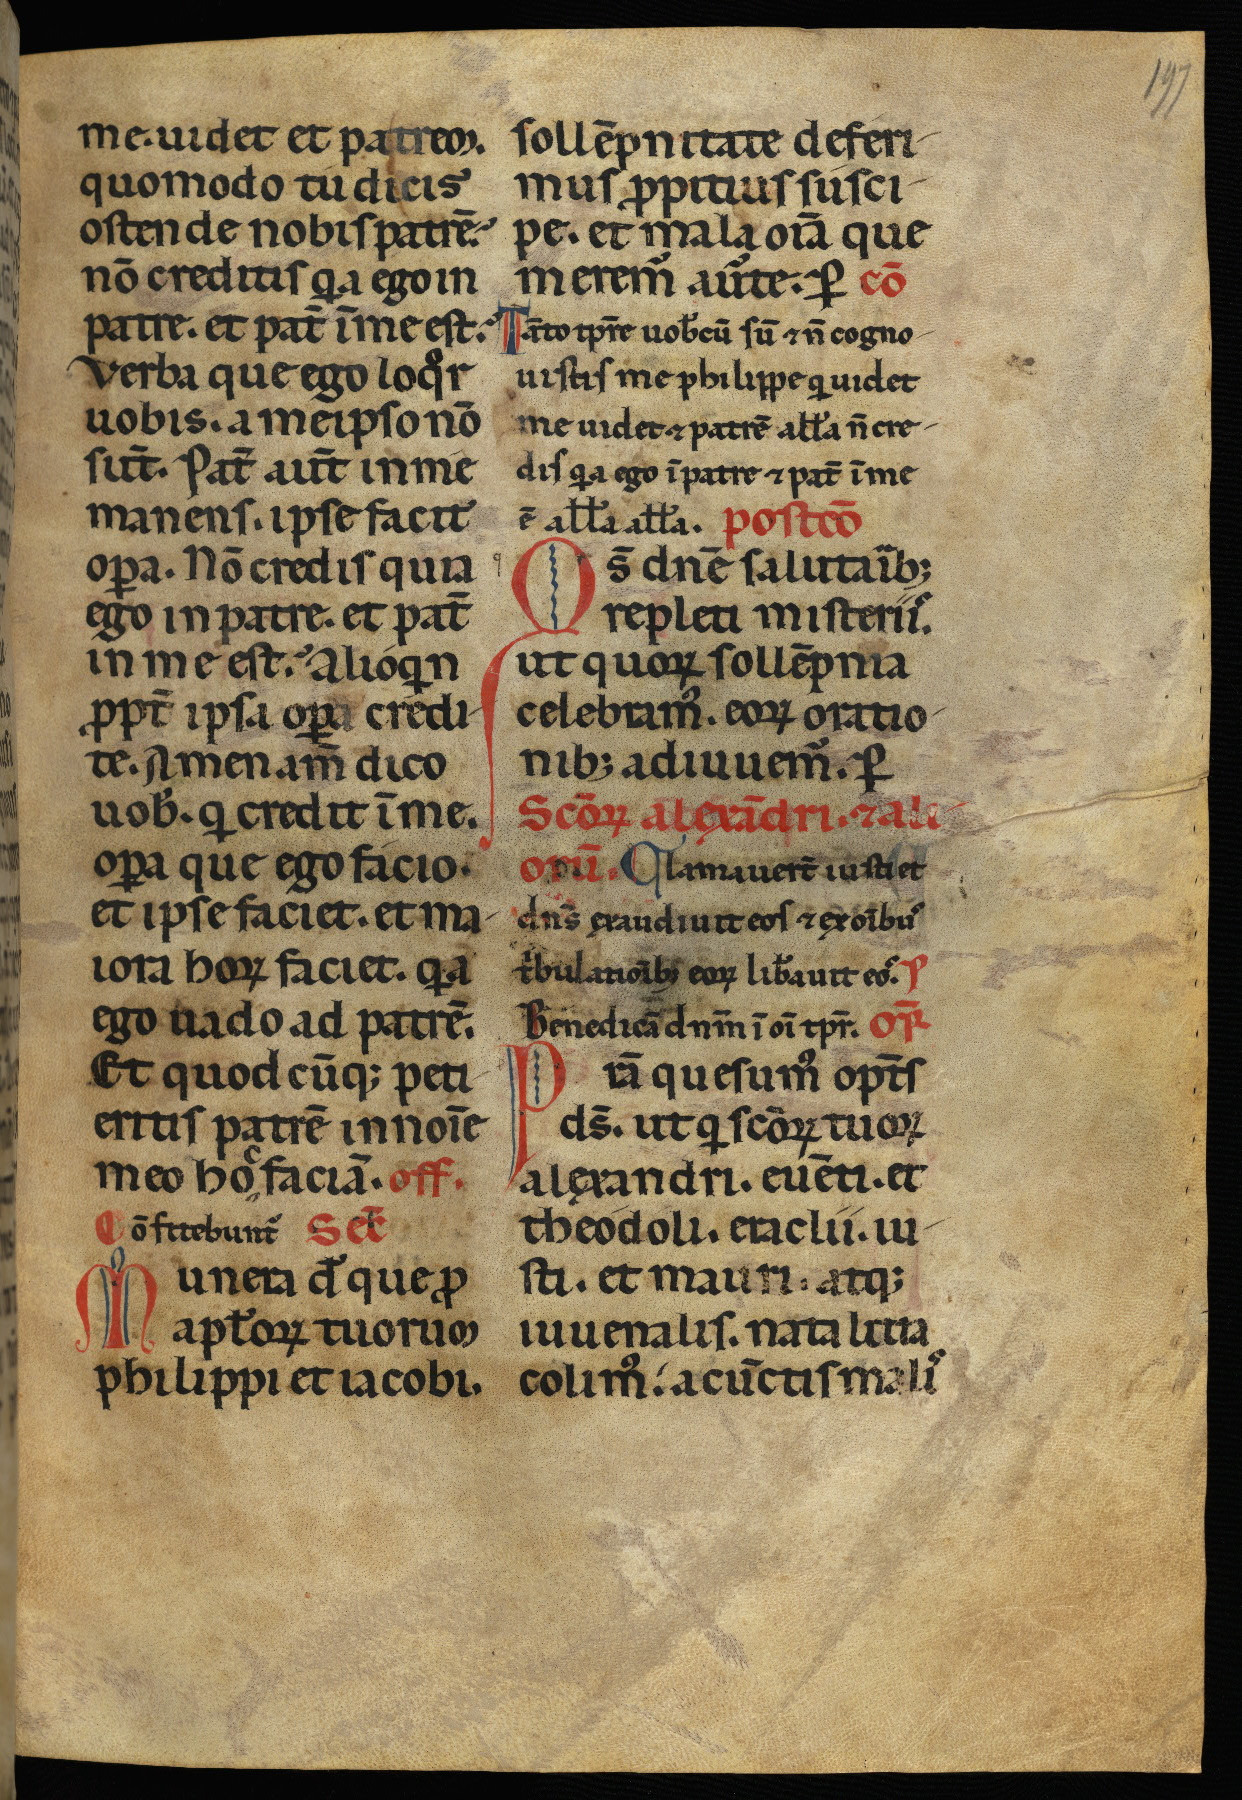 197
me. uidet et patrem.
quomodo tu dicis
ostende nobis patrē.
nō creditis q̇a ego in
patre. et pat̄ ī me est.
Verba que ego loq̊r
uobis. a me ipso nō
sūt. Pat̄ aut̄ in me
manens. ipse facit
oꝑa. Nō credis quia
ego in patre. et pat̄
in me est. Alioqn
ꝓpt̄ ipsa oꝑa credi-
te. Amen am̄ dico
uob̓. q credit ī me.
oꝑa que ego facio.
et ipse faciet. et ma-
iora hoꝝ faciet. q̇a
ego uado ad patrē.
Et quodcūq; peti-
eritis patrē in noīe
meo hoc faciā. off.
Cōfitebunt᷑ Secr̄
Munera d̓ que ꝓ
apl̓oꝝ tuorum
philippi et iacobi.
sollēpnitate deferi-
mus ꝓpitius susci-
pe. et mala oīa que
merem᷒ au᷒te. ꝑ cō
Tāto tp̄re uob̓cū sū ⁊ n̄ cogno-
uistis me philippe q uidet
me uidet ⁊ patrē all̓a n̄ cre-
dis q̇a ego ī patre ⁊ pat̄ ī me
ē all̓a all̓a. postcō
Qs̄ dn̄e salutaīb;
repleti misterii᷒.
ut quoꝝ sollēpnia
celebram᷒. eoꝝ oratio-
nib; adiuuem᷒. ꝑ
Scōꝝ alexādri. ⁊ ali-
orū. Clamauert̄ iusti et
dn̄s exaudiuit eos ⁊ ex oīb᷒
t̓bulatioīb; eoꝝ lib̓auit eo᷒. P
Benedicā dn̄m ī oī tp̄r. Oꝑ
Prā quesum᷒ opt̄s
ds̄. ut q scōꝝ tuoꝝ
alexandri. euēti. et
theodoli. eraclii. iu-
sti. et mauri. atq;
iuuenalis. natalitia
colim᷒. a cūctis mali᷒